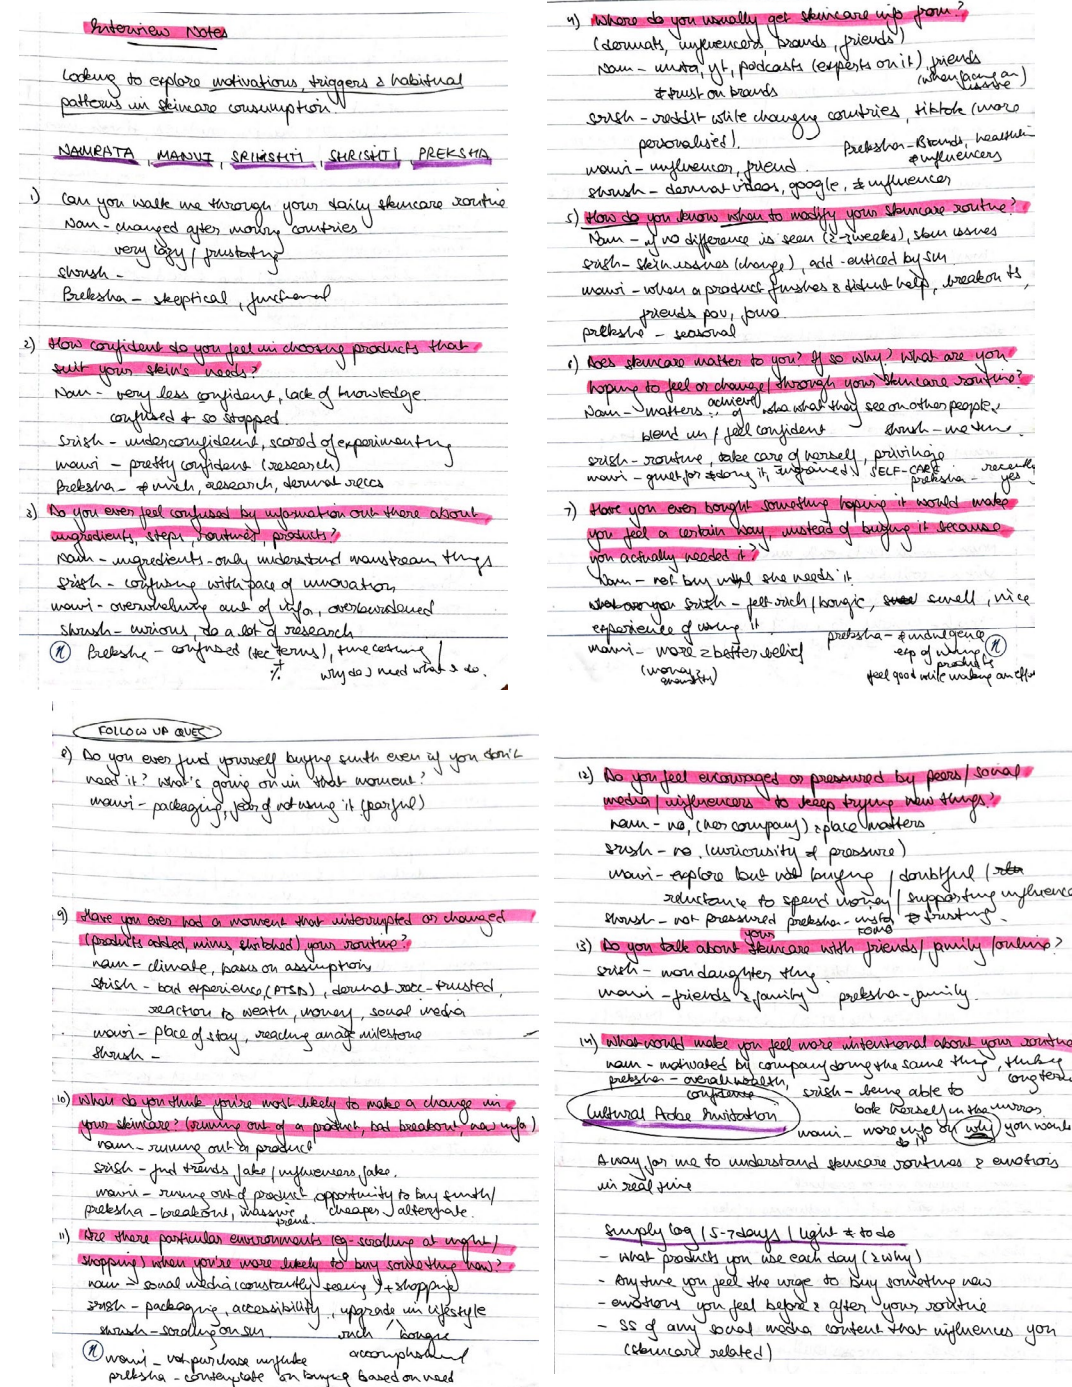 Interview Notes
Looking to explore motivations, triggers & habitual
patterns in skincare consumption.
NAMRATA, MANVI, SRISHTI, SHRISHTI, PREKSHA
1) Can you walk me through your daily skincare routine
Nam - changed after moving countries
very lazy / frustating
Shrish -
Preksha - skeptical, functional
2) How confident do you feel in choosing products that
suit your skin's needs?
Nam - very less confident, lack of knowledge
confused & so stopped
Srish - underconfident, scared of experimenting
manvi - pretty confident (research)
Preksha - much, research, dermat reccs
3) Do you ever feel confused by information out there about
ingredients, steps, routines, products?
Nam - ingredients - only understand mainstream things
Srish - confusing with pace of innovation
manvi - overwhelming amt of info, overburdened
Shrish - curious, do a lot of research
Preksha - confused (tec terms), time consuming /
why do I need what I do.
4) Where do you usually get skincare info from?
(dermats, influencers, brands, friends)
Nam - insta, yt, podcasts (experts on it), friends
(when facing an issue)
& trust on brands
Srish - reddit while changing countries, tiktok (more
personalised).
Preksha - Brands, health
& influencers
manvi - influencer, friend.
Shrish - dermat videos, google, influencers
5) How do you know when to modify your skincare routine?
Nam - if no difference is seen (2-3 weeks), skin issues
Srish - skin issues (change), add - enticed by sm
manvi - when a product finishes & didnt help, breakouts,
friends pov, fomo
preksha - seasonal
6) Does skincare matter to you? If so why? What are you
hoping to feel or change through your skincare routine?
Nam - matters, achieve what they see on other people,
blend in / feel confident
Shrish - me time
Srish - routine, take care of herself, privilege
manvi - guilt for doing it, ingrained, SELF-CARE
preksha - recently yes
7) Have you ever bought something hoping it would make
you feel a certain way, instead of buying it because
you actually needed it?
Nam - not buy until she needs it
Srish - felt rich / bougie, smell, nice
experience of using it
preksha - indulgence
exp of using products
feel good while making an effo
manvi - more = better belief
FOLLOW UP QUES
8) Do you ever find yourself buying smth even if you don't
need it? What's going on in that moment?
manvi - packaging, fear of not using it (fearful)
9) Have you ever had a moment that interrupted or changed
(products added, minus, switched) your routine?
nam - climate, basis on assumption
Srish - bad experience, (PTSD), dermat recc - trusted,
reaction to weath, money, social media
manvi - place of stay, reaching an age milestone
Shrish -
10) When do you think you're most likely to make a change in
your skincare? (running out of a product, bad breakout, new info)
nam - running out of product
Srish - find trends fake / influencers fake.
manvi - running out of product, opportunity to buy smth /
cheaper alternate.
preksha - breakout, massive trend
11) Are there particular environments (eg - scrolling at night /
shopping) when you're more likely to buy something new?
nam - social media (constantly seeing) + shopping
Srish - packaging, accessibility, upgrade in lifestyle
rich / bougie
accomplishment
Shrish - scrolling on sm.
manvi - not purchase
preksha - contemplate on buying based on need
12) Do you feel encouraged or pressured by peers / social
media / influencers to keep trying new things?
nam - no, (her company) & place matters
Srish - no. (curiousity & pressure)
manvi - explore but not buying / doubtful /
reluctance to spend money / supporting influence
Shrish - not pressured
preksha - insta FOMO trusting
13) Do you talk about your skincare with friends / family / online?
Srish - mom daughter thing
manvi - friends & family
preksha - family
14) What would make you feel more intentional about your routine
nam - motivated by company doing the same thing, thinking
long term
preksha - overall health,
confidence
Srish - being able to
look herself in the mirror
manvi - more info on why you wanna
do it
Cultural Probe Invitation
A way for me to understand skincare routines & emotions
in real time
Simply log / 5-7 days / light & to do
- What products you use each day (& why)
- Anytime you feel the urge to buy something new
- emotions you feel before & after your routine
- SS of any social media content that influences you
(skincare related)